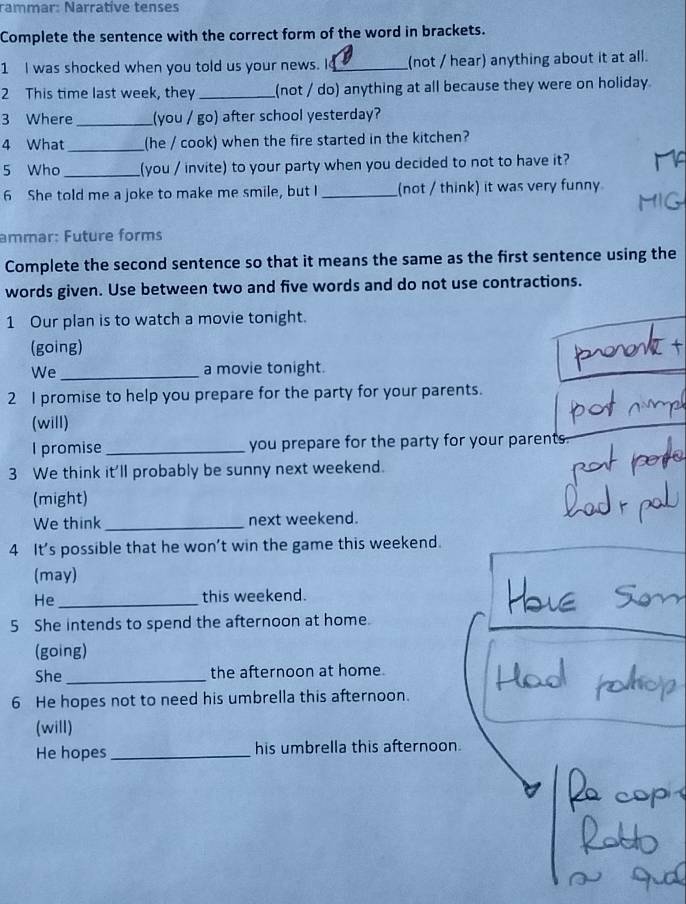 rammar: Narrative tenses
Complete the sentence with the correct form of the word in brackets.
1 I was shocked when you told us your news. I ________ (not / hear) anything about it at all.
2 This time last week, they ________ (not / do) anything at all because they were on holiday.
3 Where ________ (you / go) after school yesterday?
4 What ________ (he / cook) when the fire started in the kitchen?
5 Who ________ (you / invite) to your party when you decided to not to have it?
6 She told me a joke to make me smile, but I ________ (not / think) it was very funny.
MIG
ammar: Future forms
Complete the second sentence so that it means the same as the first sentence using the
words given. Use between two and five words and do not use contractions.
1 Our plan is to watch a movie tonight.
(going)
We ________ a movie tonight.
2 I promise to help you prepare for the party for your parents.
(will)
I promise ________ you prepare for the party for your parents.
3 We think it'll probably be sunny next weekend.
(might)
We think ________ next weekend.
4 It's possible that he won't win the game this weekend.
(may)
He ________ this weekend.
5 She intends to spend the afternoon at home.
(going)
She ________ the afternoon at home.
6 He hopes not to need his umbrella this afternoon.
(will)
He hopes ________ his umbrella this afternoon.
Had